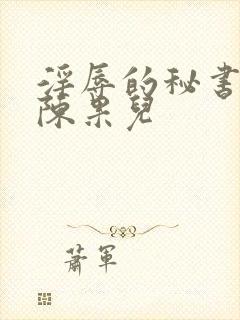 淫辱的秘書
陳果兒
蕭軍